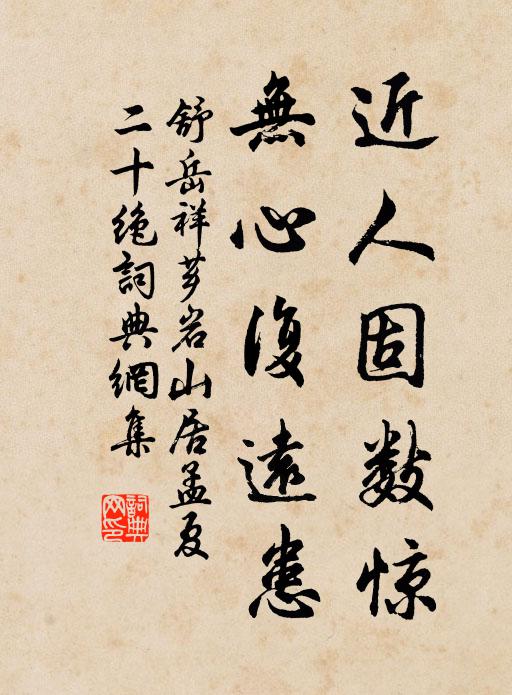 近人固数惊
無心復遠患
舒岳祥芗岩山居孟夏
二十绝詞典網集
詞典网印